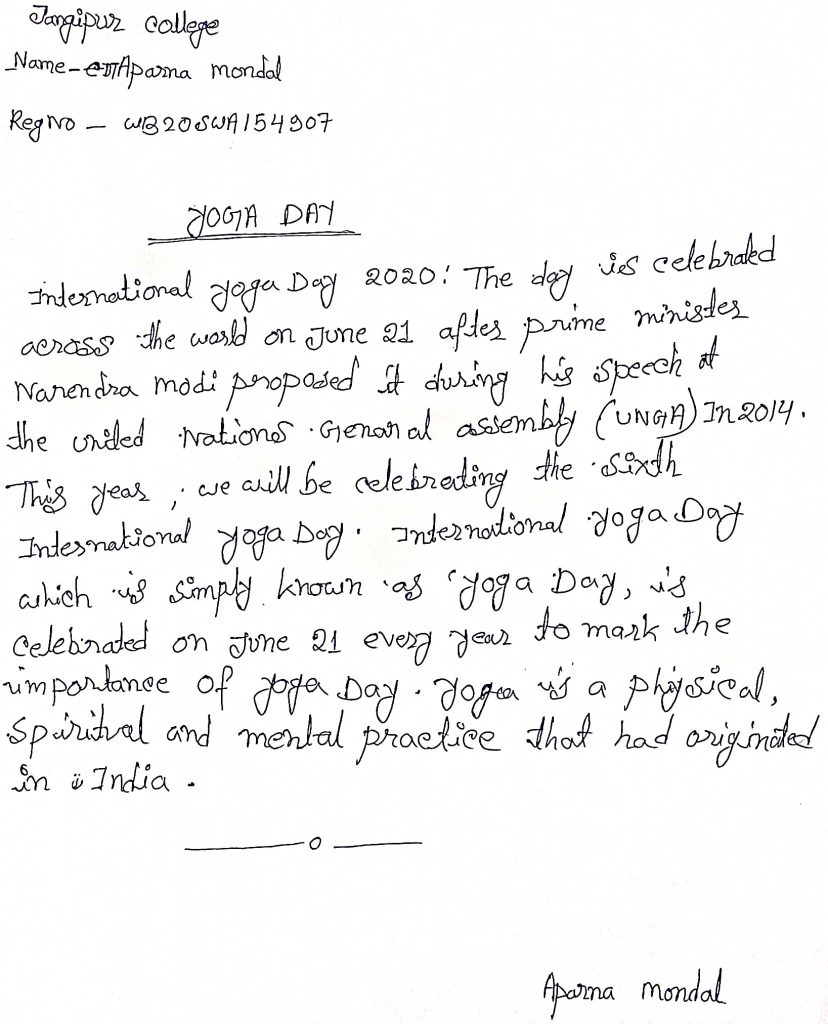 Jangipur college
Name - Aparna mondal
Reg No - WB20SWA154907
YOGA DAY
International yoga Day 2020: The day is celebrated
across the world on June 21 after prime minister
Narendra modi proposed it during his speech at
the united Nations General assembly (UNGA) In 2014.
This year, we will be celebrating the sixth
International yoga Day. International yoga Day
which is simply known as 'yoga Day, is
celebrated on June 21 every year to mark the
importance of yoga Day. Yoga is a physical,
Spiritual and mental practice that had originated
in India.
—o—
Aparna mondal